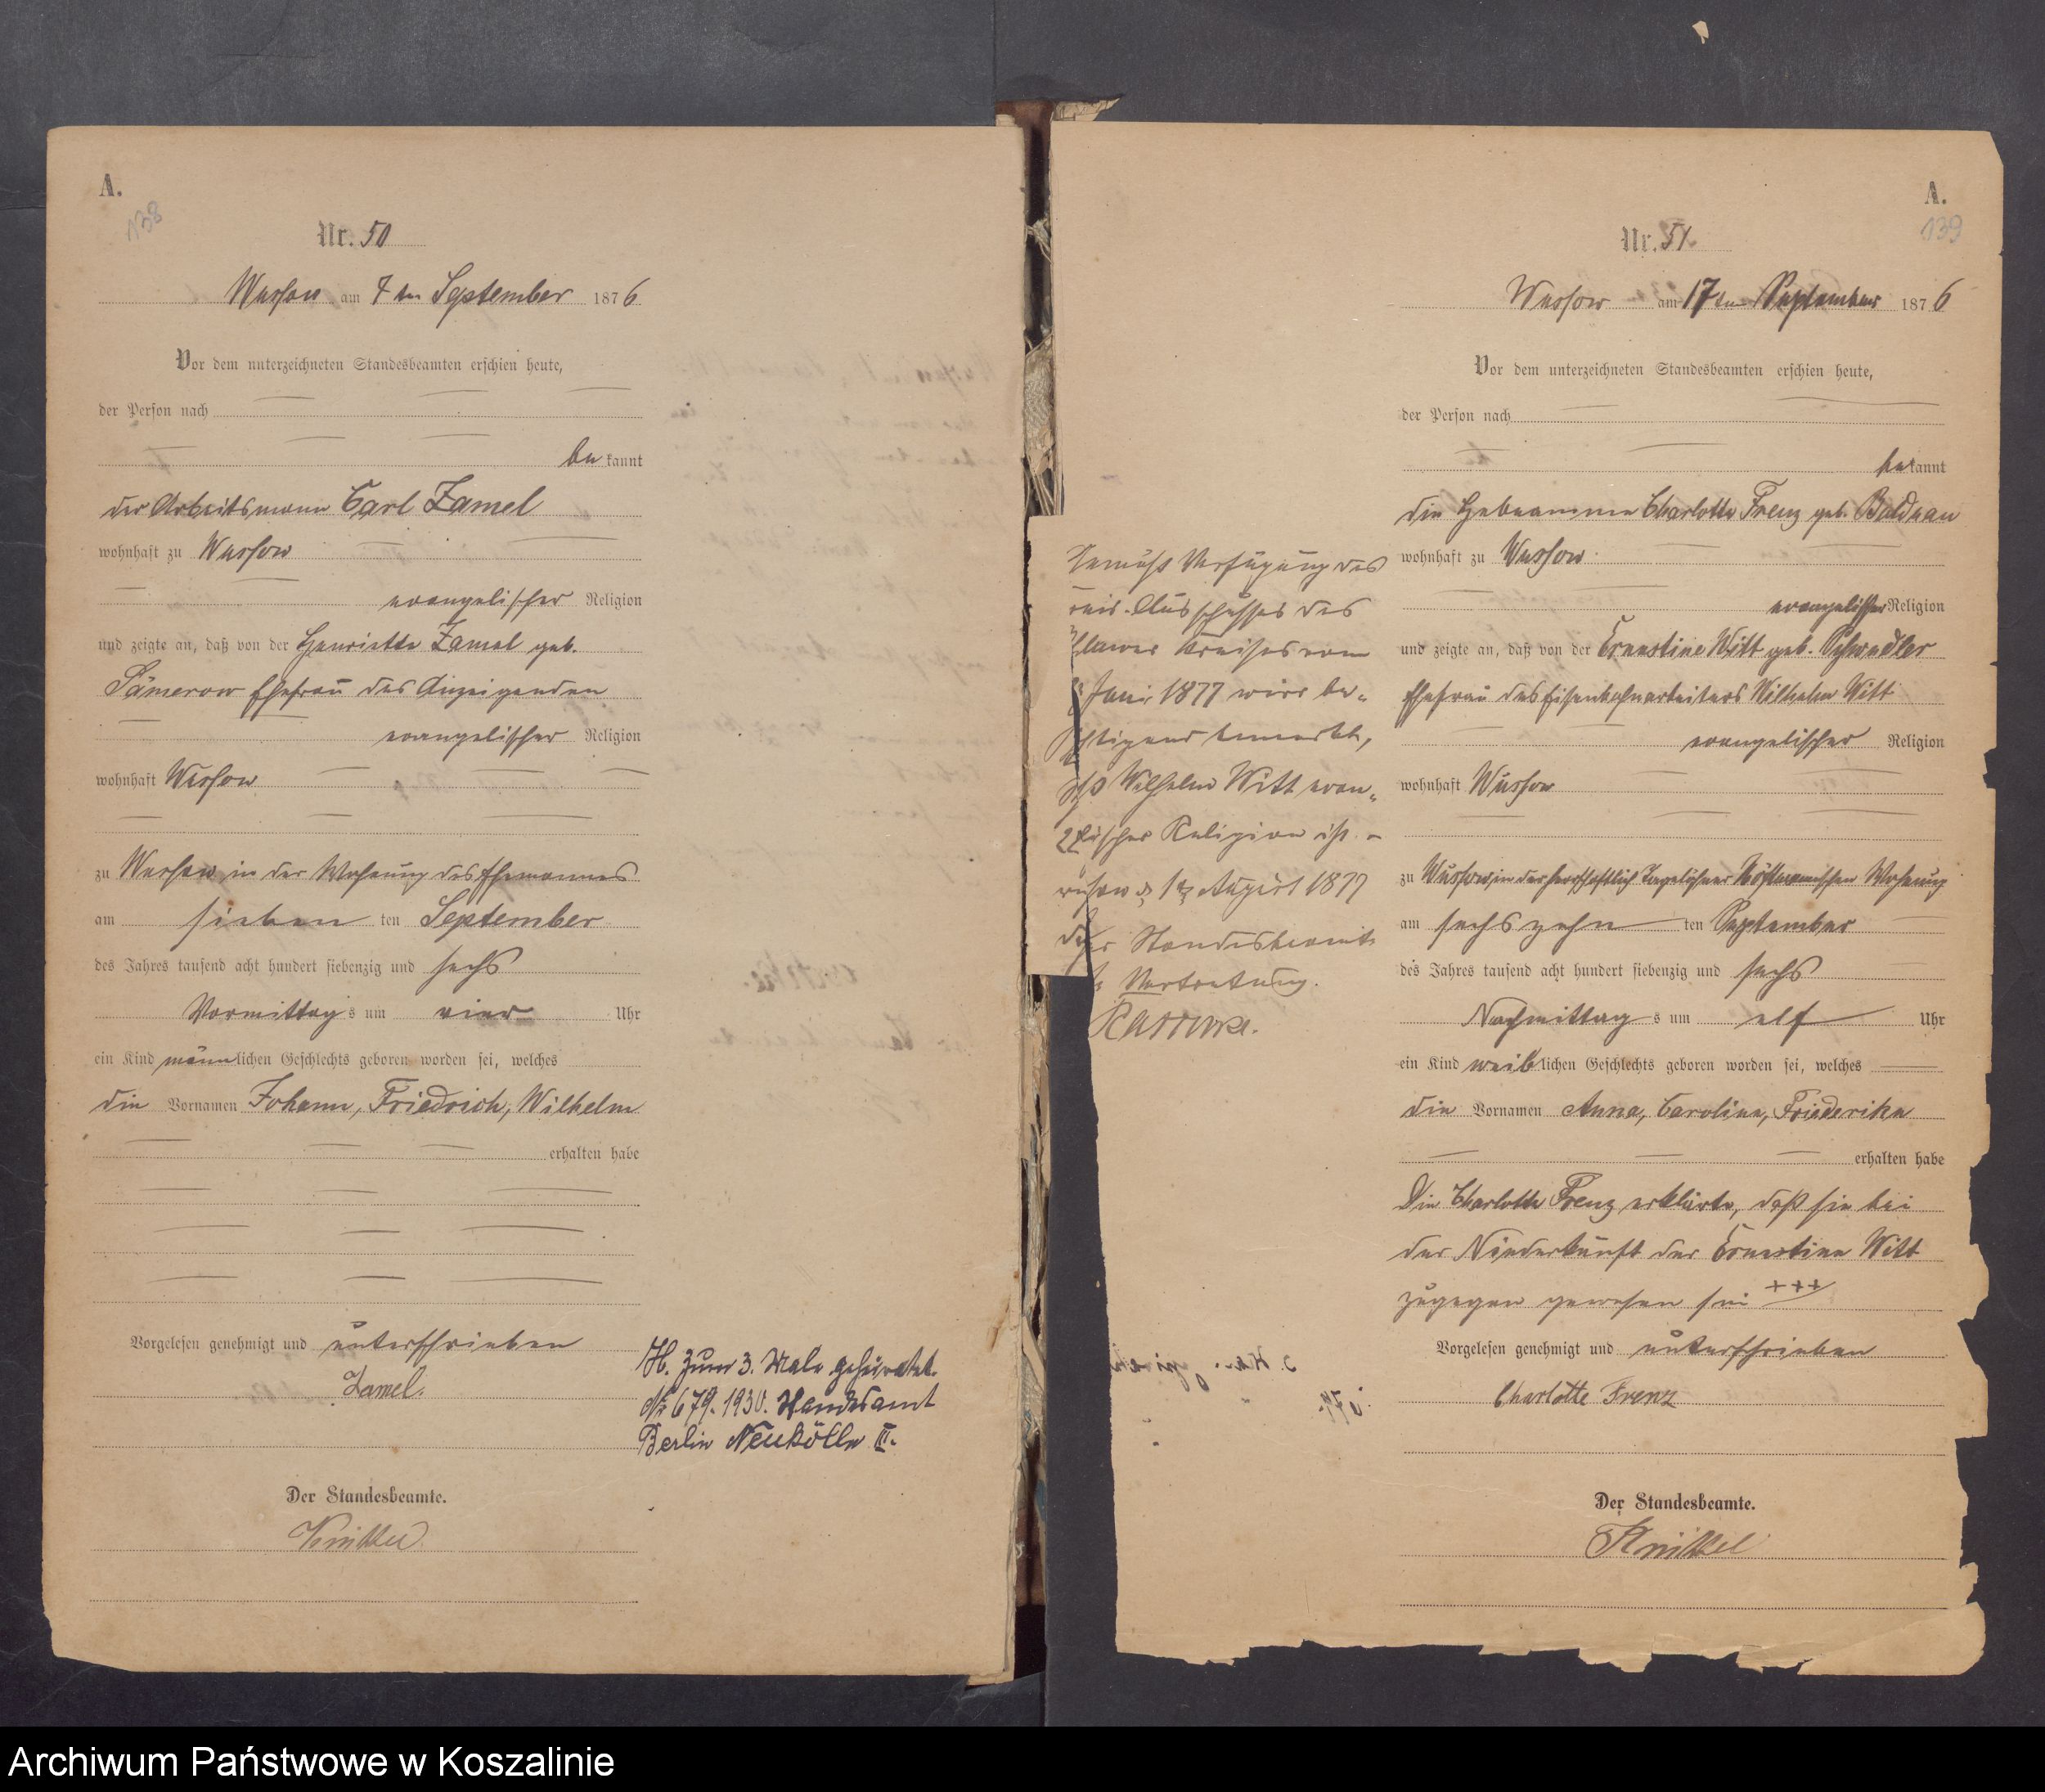 A.
138
Nr. 50
Wussow am 7 ten September 1876
Vor dem unterzeichneten Standesbeamten erschien heute,
der Person nach
bekannt
der Arbeitsmann Carl Zamel
wohnhaft zu Wussow
evangelischer Religion
und zeigte an, daß von der Henriette Zamel geb.
Sämerow Ehefrau des Anzeigenden
evangelischer Religion
wohnhaft Wussow
zu Wussow in der Wohnung des Ehemannes
am sieben ten September
des Jahres tausend acht hundert siebenzig und sechs
Vormittags um vier Uhr
ein Kind männlichen Geschlechts geboren worden sei, welches
die Vornamen Johann, Friedrich, Wilhelm
erhalten habe
Vorgelesen genehmigt und unterschrieben
Zamel.
H. zum 3. Male geheiratet.
Nr 679. 1930. Standesamt
Berlin Neukölln III.
Der Standesbeamte.
Knüttel
A.
139
Nr. 51
Wussow am 17 ten September 1876
Vor dem unterzeichneten Standesbeamten erschien heute,
der Person nach
bekannt
die Hebeamme Charlotte Frenz geb. Balduan
wohnhaft zu Wussow
evangelischer Religion
und zeigte an, daß von der Ernestine Witt geb. Schwedler
Ehefrau des Eisenbahnarbeiters Wilhelm Witt
evangelischer Religion
wohnhaft Wussow
zu Wussow in der herrschaftlich Tagelöhner Wohnung
am sechszehn ten September
des Jahres tausend acht hundert siebenzig und sechs
Nachmittags um elf Uhr
ein Kind weiblichen Geschlechts geboren worden sei, welches
die Vornamen Anna, Caroline, Friederike
erhalten habe
Die Charlotte Frenz erklärte, daß sie bei
der Niederkunft der Ernestine Witt
zugegen gewesen sei +++
Vorgelesen genehmigt und unterschrieben
Charlotte Frenz
Der Standesbeamte.
Knüttel
Gemäß Verfügung des
Kreis-Ausschusses des
Schlawer Kreises vom
Juni 1877 wird be-
richtigend bemerkt,
daß Wilhelm Witt evan-
gelischer Religion ist. -
Wussow d. 1ten August 1877
Der Standesbeamte
Vertretung.
Archiwum Państwowe w Koszalinie